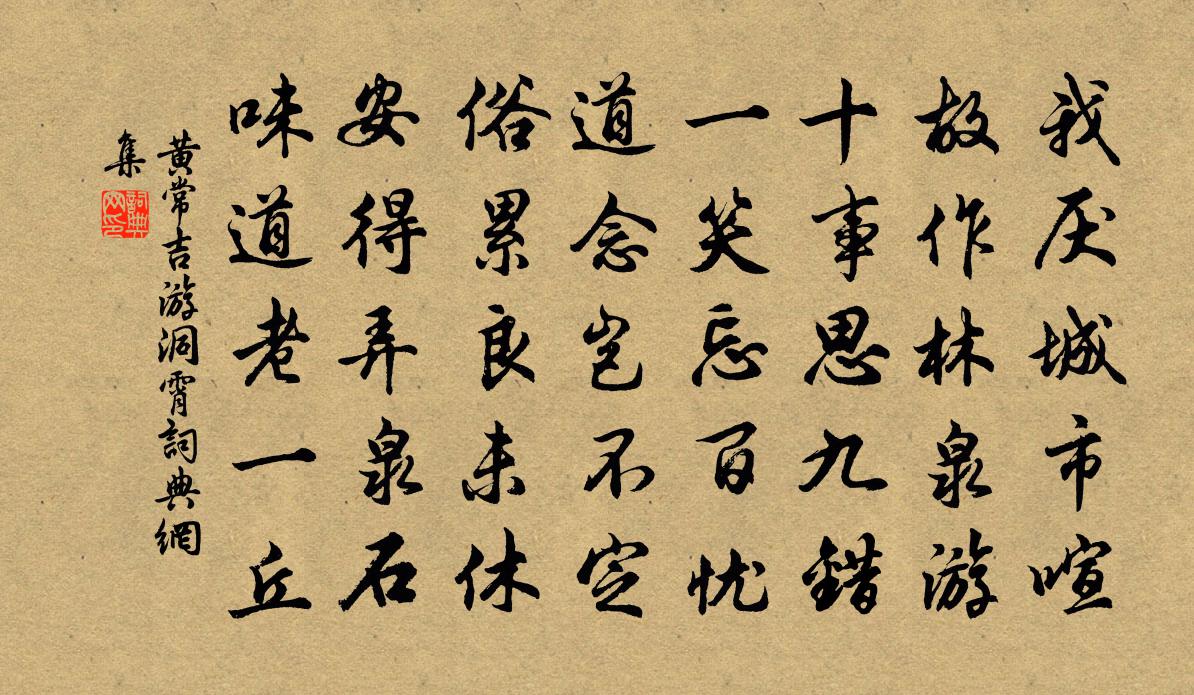 我厌城市喧
故作林泉游
十事思九錯
一笑忘百忧
道念岂不定
俗累良未休
安得弄泉石
味道老一丘
黄常吉游洞霄詞典網
集
詞典
网印